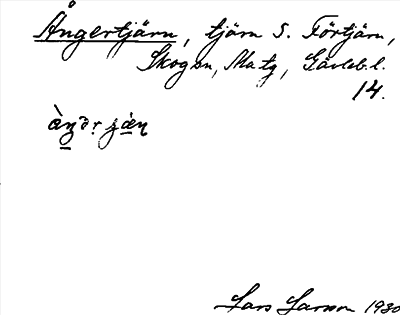 Ångertjärn, tjärn S. Förtjärn,
Skogen, Ma tg, Gävleb.l.
14.
Lars Larsson 1930